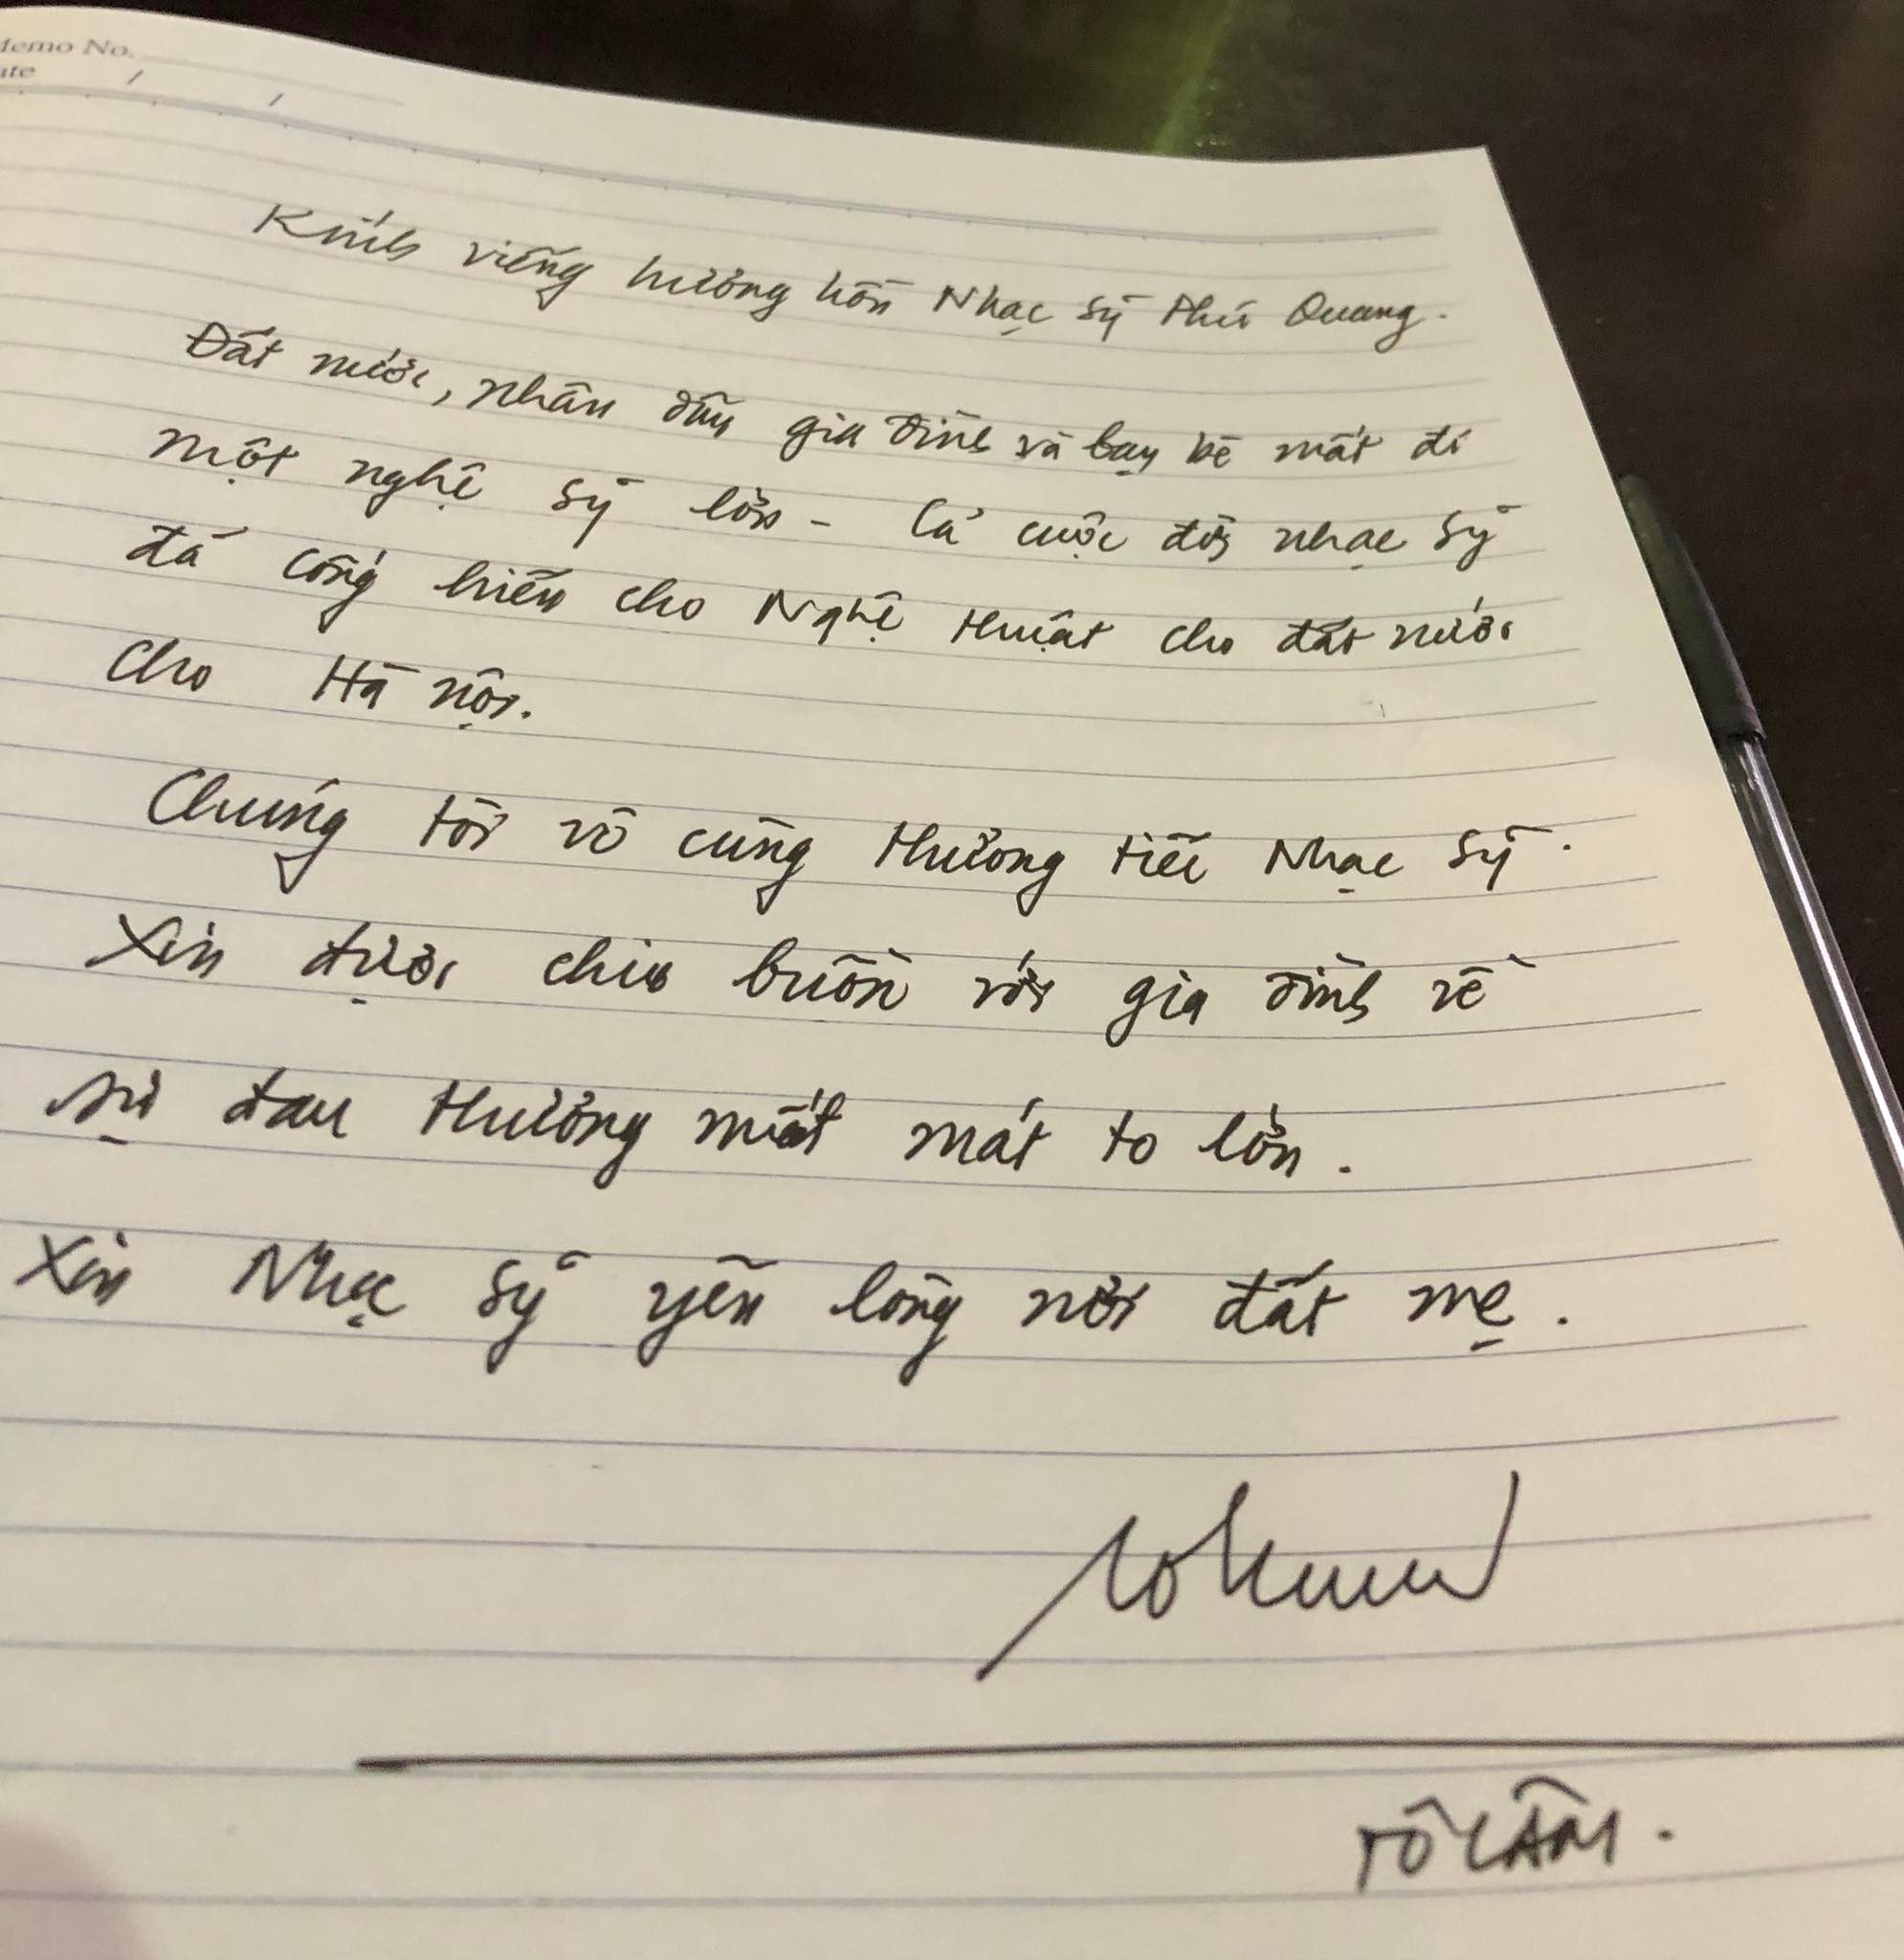 Memo No.
Date / /
Kính viếng hương hồn Nhạc sỹ Phú Quang.
Đất nước, nhân dân gia đình và bạn bè mất đi
một nghệ sỹ lớn - Cả cuộc đời nhạc sỹ
đã cống hiến cho Nghệ thuật cho đất nước
cho Hà nội.
Chúng tôi vô cùng thương tiếc Nhạc sỹ.
Xin được chia buồn với gia đình về
sự đau thương mất mát to lớn.
Xin Nhạc sỹ yên lòng nơi đất mẹ.
TÔ LÂM.